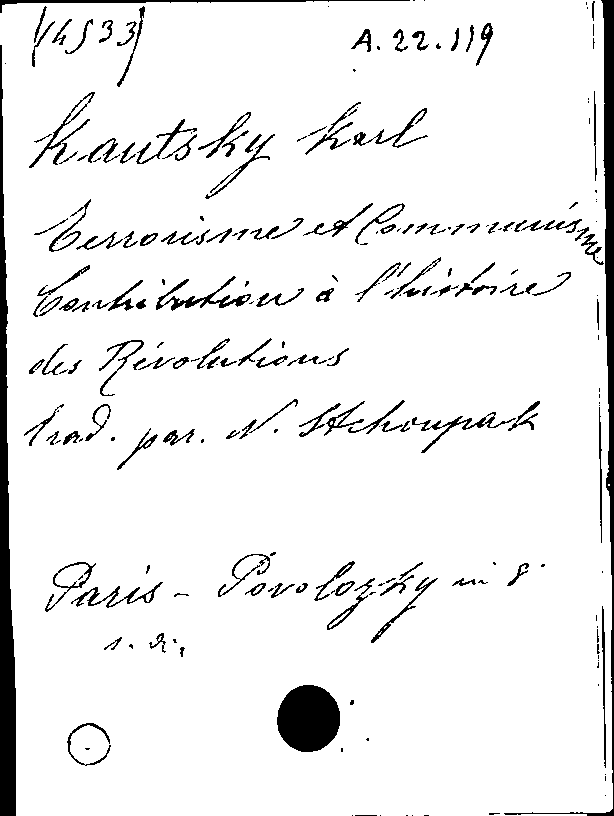 (14533)
A.22.119
Kautsky Karl
Terrorisme et Communisme
Contribution à l'histoire
des Révolutions
trad. par. N. Stchoupak
Paris - Povolozky in 8°
s. d.